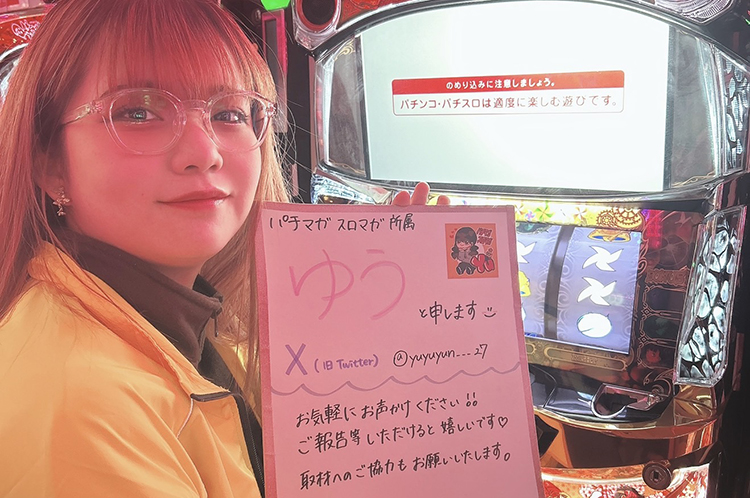 のめり込みに注意しましょう。
パチンコ・パチスロは適度に楽しむ遊びです。
パチマガスロマガ所属
ゆう
と申します
X (旧 Twitter) @yuyuyun---27
お気軽にお声かけください!!
ご報告等いただけると嬉しいです♡
取材へのご協力もお願いいたします。